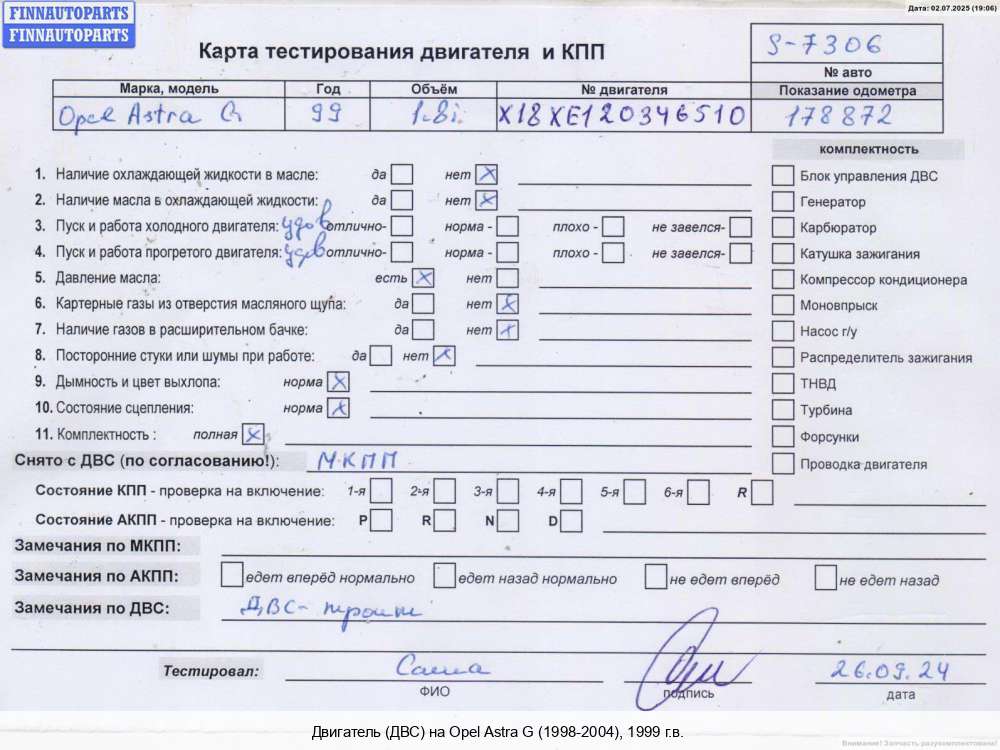 Дата: 02.07.2025 (19:06)
FINNAUTOPARTS
FINNAUTOPARTS
Карта тестирования двигателя и КПП
S-7306
№ авто
Марка, модель Год Объём № двигателя Показание одометра
Opel Astra G 99 1.8i X18XE120346510 178872
комплектность
1. Наличие охлаждающей жидкости в масле: да нет X
Блок управления ДВС
2. Наличие масла в охлаждающей жидкости: да нет X
Генератор
3. Пуск и работа холодного двигателя: удов отлично- норма - плохо - не завелся-
Карбюратор
4. Пуск и работа прогретого двигателя: удов отлично- норма - плохо - не завелся-
Катушка зажигания
5. Давление масла: есть X нет
Компрессор кондиционера
6. Картерные газы из отверстия масляного щупа: да нет X
Моновпрыск
7. Наличие газов в расширительном бачке: да нет X
Насос г/у
8. Посторонние стуки или шумы при работе: да нет X
Распределитель зажигания
9. Дымность и цвет выхлопа: норма X
ТНВД
10. Состояние сцепления: норма X
Турбина
11. Комплектность : полная X
Форсунки
Снято с ДВС (по согласованию!): МКПП
Проводка двигателя
Состояние КПП - проверка на включение: 1-я 2-я 3-я 4-я 5-я 6-я R
Состояние АКПП - проверка на включение: P R N D
Замечания по МКПП:
Замечания по АКПП: едет вперёд нормально едет назад нормально не едет вперёд не едет назад
Замечания по ДВС: ДВС- троит
Тестировал: Саша 26.09.24
ФИО подпись дата
Двигатель (ДВС) на Opel Astra G (1998-2004), 1999 г.в.
Внимание! Запчасть разукомплектована!